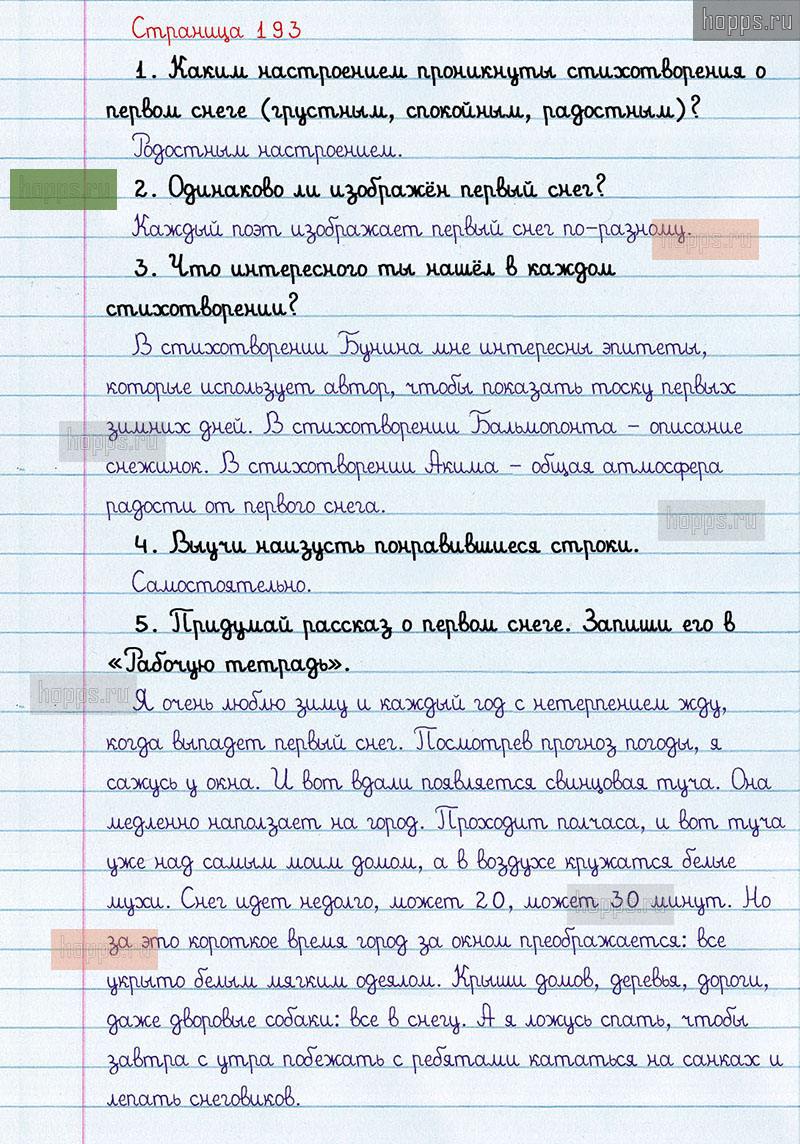 hopps.ru
Страница 193
1. Каким настроением проникнуты стихотворения о
первом снеге (грустным, спокойным, радостным)?
Родостным настроением.
hopps.ru
2. Одинаково ли изображён первый снег?
Каждый поэт изображает первый снег по-разному.
hopps.ru
3. Что интересного ты нашёл в каждом
стихотворении?
В стихотворении Бунина мне интересны эпитеты,
которые использует автор, чтобы показать тоску первых
зимних дней. В стихотворении Бальмопонта – описание
hopps.ru
снежинок. В стихотворении Акима – общая атмосфера
радости от первого снега.
hopps.ru
4. Выучи наизусть понравившиеся строки.
Самостоятельно.
5. Придумай рассказ о первом снеге. Запиши его в
«Рабочую тетрадь».
hopps.ru
Я очень люблю зиму и каждый год с нетерпением жду,
когда выпадет первый снег. Посмотрев прогноз погоды, я
сажусь у окна. И вот вдали появляется свинцовая туча. Она
медленно наползает на город. Проходит полчаса, и вот туча
уже над самым моим домом, а в воздухе кружатся белые
мухи. Снег идет недолго, может 20, может 30 минут. Но
hopps.ru
за это короткое время город за окном преображается: все
hopps.ru
укрыто белым мягким одеялом. Крыши домов, деревья, дороги,
даже дворовые собаки: все в снегу. А я ложусь спать, чтобы
завтра с утра побежать с ребятами кататься на санках и
лепать снеговиков.